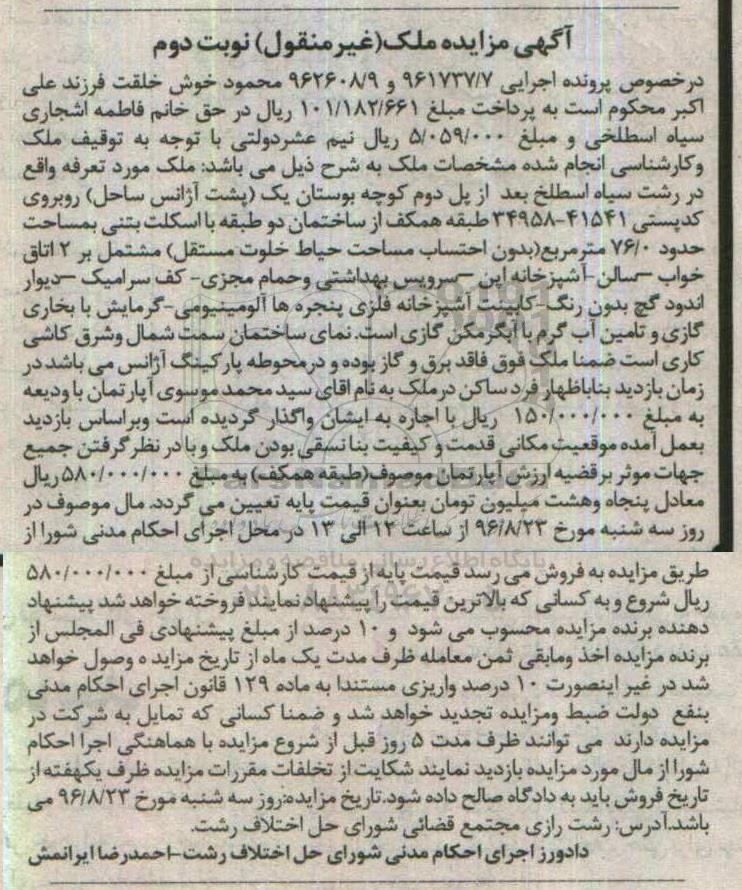 آگهی مزایده ملک(غیرمنقول) نوبت دوم
درخصوص پرونده اجرایی ۹۶۱۷۳۷/۷ و ۹۶۲۶۰۸/۹ محمود خوش خلقت فرزند علی
اکبر محکوم است به پرداخت مبلغ ۱۰۱/۱۸۲/۶۶۱ ریال در حق خانم فاطمه اشجاری
سیاه اسطلخی و مبلغ ۵/۰۵۹/۰۰۰ ریال نیم عشردولتی با توجه به توقیف ملک
وکارشناسی انجام شده مشخصات ملک به شرح ذیل می باشد: ملک مورد تعرفه واقع
در رشت سیاه اسطلخ بعد از پل دوم کوچه بوستان یک (پشت آژانس ساحل) روبروی
کدپستی ۴۱۵۴۱-۳۴۹۵۸ طبقه همکف از ساختمان دو طبقه با اسکلت بتنی بمساحت
حدود ۷۶/۰ مترمربع(بدون احتساب مساحت حیاط خلوت مستقل) مشتمل بر ۲ اتاق
خواب –سالن-آشپزخانه اپن –سرویس بهداشتی وحمام مجزی- کف سرامیک –دیوار
اندود گچ بدون رنگ-کابینت آشپزخانه فلزی پنجره ها آلومینیومی-گرمایش با بخاری
گازی و تامین آب گرم با آبگرمکن گازی است. نمای ساختمان سمت شمال وشرق کاشی
کاری است ضمنا ملک فوق فاقد برق و گاز بوده و درمحوطه پارکینگ آژانس می باشد در
زمان بازدید بناباظهار فرد ساکن درملک به نام اقای سید محمد موسوی آپارتمان با ودیعه
به مبلغ ۱۵۰/۰۰۰/۰۰۰ ریال با اجاره به ایشان واگذار گردیده است وبراساس بازدید
بعمل آمده موقعیت مکانی قدمت و کیفیت بنا نسقی بودن ملک و با در نظر گرفتن جمیع
جهات موثر بر قضیه ارزش آپارتمان موصوف(طبقه همکف) به مبلغ ۵۸۰/۰۰۰/۰۰۰ ریال
معادل پنجاه وهشت میلیون تومان بعنوان قیمت پایه تعیین می گردد. مال موصوف در
روز سه شنبه مورخ ۹۶/۸/۲۳ از ساعت ۱۲ الی ۱۳ در محل اجرای احکام مدنی شورا از
طریق مزایده به فروش می رسد قیمت پایه از قیمت کارشناسی از مبلغ ۵۸۰/۰۰۰/۰۰۰
ریال شروع و به کسانی که بالاترین قیمت را پیشنهاد نمایند فروخته خواهد شد پیشنهاد
دهنده برنده مزایده محسوب می شود و ۱۰ درصد از مبلغ پیشنهادی فی المجلس از
برنده مزایده اخذ ومابقی ثمن معامله ظرف مدت یک ماه از تاریخ مزاید ه وصول خواهد
شد در غیر اینصورت ۱۰ درصد واریزی مستندا به ماده ۱۲۹ قانون اجرای احکام مدنی
بنفع دولت ضبط ومزایده تجدید خواهد شد و ضمنا کسانی که تمایل به شرکت در
مزایده دارند می توانند ظرف مدت ۵ روز قبل از شروع مزایده با هماهنگی اجرا احکام
شورا از مال مورد مزایده بازدید نمایند شکایت از تخلفات مقررات مزایده ظرف یکهفته از
تاریخ فروش باید به دادگاه صالح داده شود.تاریخ مزایده:روز سه شنبه مورخ ۹۶/۸/۲۳ می
باشد.آدرس: رشت رازی مجتمع قضائی شورای حل اختلاف رشت.
دادورز اجرای احکام مدنی شورای حل اختلاف رشت-احمدرضا ایرانمش